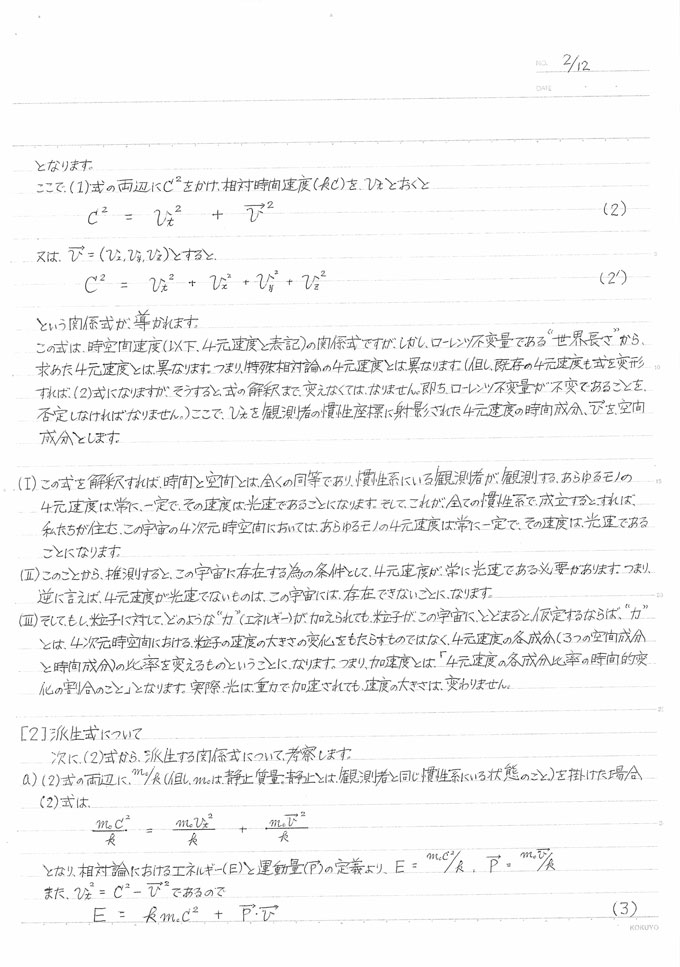 NO. 2/12
DATE
となります。
ここで、(1)式の両辺にC²をかけ、相対時間速度(kC)を、Vtとおくと
C² = Vt² + V⃗² (2)
又は、V⃗ = (Vx, Vy, Vz)とすると、
C² = Vt² + Vx² + Vy² + Vz² (2')
という関係式が、導かれます。
この式は、時空間速度(以下、4元速度と表記)の関係式ですが、しかし、ローレンツ不変量である“世界長さ”から、
求めた4元速度とは、異なります。つまり、特殊相対論の4元速度とは異なります。(但し、既存の4元速度も式を変形
すれば、(2)式になりますが、そうすると、式の解釈まで、変えなくては、なりません。即ち、ローレンツ不変量が不変であることを、
否定しなければなりません。)ここで、Vtを観測者の慣性座標に射影された4元速度の時間成分、V⃗を、空間
成分とします。
(I) この式を解釈すれば、時間と空間とは、全くの同等であり、慣性系にいる観測者が、観測する、あらゆるモノの
4元速度は常に、一定で、その速度は、光速であることになります。そして、これが、全ての慣性系で、成立するとすれば、
私たちが住む、この宇宙の4次元時空間においては、あらゆるモノの4元速度は常に一定で、その速度は、光速である
ことになります。
(II) このことから、推測すると、この宇宙に存在する為の条件として、4元速度が、常に光速である必要があります。つまり、
逆に言えば、4元速度が光速でないものは、この宇宙には、存在できないことに、なります。
(III) そして、もし、粒子に対して、どのような“力”(エネルギー)が、加えられても、粒子が、この宇宙に、とどまると、仮定するならば、“力”
とは、4次元時空間における、粒子の速度の大きさの変化をもたらすものではなく、4元速度の各成分(3つの空間成分
と時間成分)の比率を変えるものということに、なります。つまり、加速度とは、「4元速度の各成分比率の時間的変
化の割合のこと」となります。実際、光は、重力で加速されても、速度の大きさは、変わりません。
[2] 派生式について
次に、(2)式から、派生する関係式について、考察します。
a) (2)式の両辺に、m₀/k(但し、m₀は、静止質量、静止とは、観測者と同じ慣性系にいる状態のこと。)を掛けた場合、
(2)式は、
m₀C²/k = m₀Vt²/k + m₀V⃗²/k
となり、相対論におけるエネルギー(E)と運動量(P⃗)の定義より、E = m₀C²/k、P⃗ = m₀V⃗/k
また、Vt² = C² − V⃗²であるので
E = km₀C² + P⃗・V⃗ (3)
KOKUYO